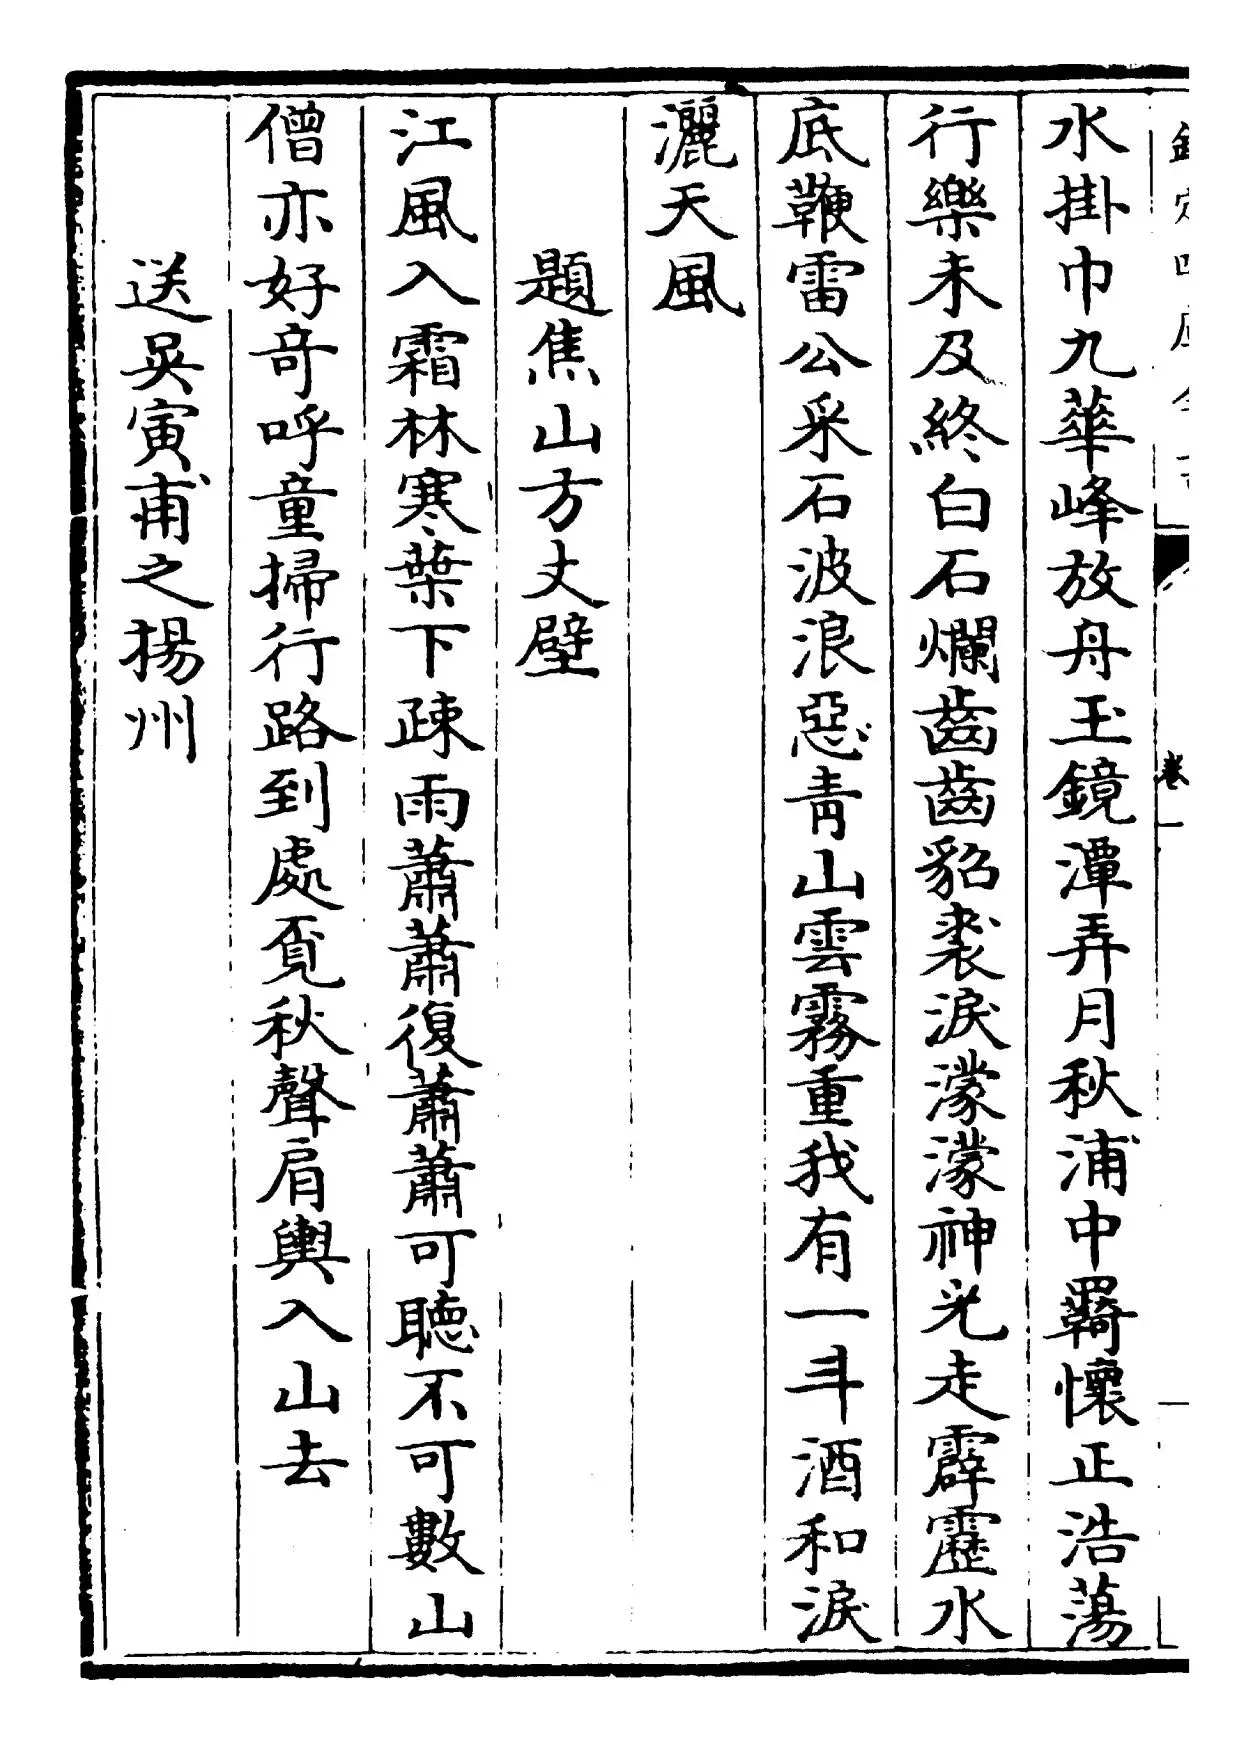 欽定四庫全書
卷一
水掛巾九華峰放舟玉鏡潭弄月秋浦中羇懷正浩蕩
行樂未及終白石爛齒齒貂裘淚濛濛神光走霹靂水
底鞭雷公采石波浪惡青山雲霧重我有一斗酒和淚
灑天風
題焦山方丈壁
江風入霜林寒葉下疎雨蕭蕭復蕭蕭可聽不可數山
僧亦好竒呼童掃行路到處覔秋聲肩輿入山去
送吳寅甫之揚州